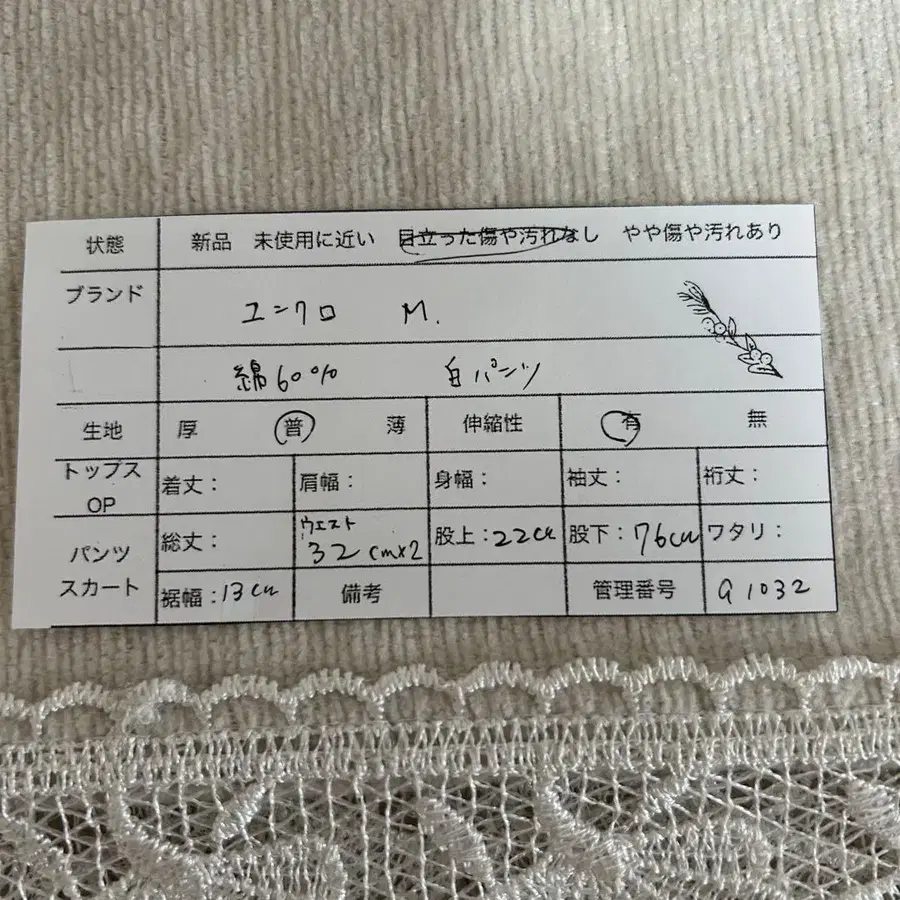 状態 新品 未使用に近い 目立った傷や汚れなし やや傷や汚れあり
ブランド ユニクロ M.
綿60% 白パンツ
生地 厚 普 薄 伸縮性 有 無
トップス OP 着丈： 肩幅： 身幅： 袖丈： 裄丈：
パンツ スカート 総丈： ウエスト 32cm×2 股上：22cm 股下：76cm ワタリ：
裾幅：13cm 備考 管理番号 a1032